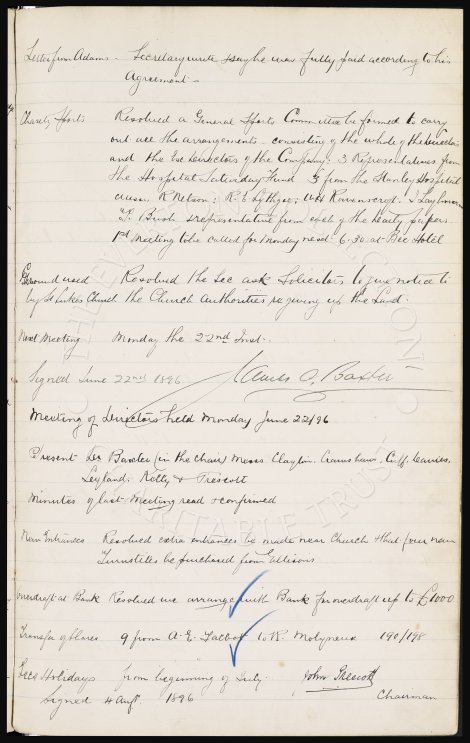 Letter from Adams - Secretary wrote & say he was fully paid according to his
Agreement -
Charity Sports Resolved a General Sports Committee be formed to carry
out all the arrangements - consisting of the whole of the Directors
and the Directors of the Company. 3 Representatives from
the Hospital Saturday Fund 3 from the Stanley Hospital
R Nelson; R. E. Lythgoe; W H Ravenscroft. J
P. Bush & representative from each of the papers
1st Meeting to be called for Monday next 6.30 at Bee Hotel
Ground used Resolved the Sec ask Solicitors to give notice to
by St Lukes Church the Church Authorities re giving up the Land.
Next Meeting Monday the 22nd Inst.
Signed June 22nd 1896 James C. Baxter
Meeting of Directors held Monday June 22/96
Present Dr Baxter (in the Chair) Messrs Clayton. Crawshaw. Cuff. Davies.
Leyland. Kelly & Prescott
Minutes of last Meeting read & confirmed
New Entrances Resolved extra entrances be made near Church & that four new
Turnstiles be purchased from Ellisons
Overdraft at Bank Resolved we arrange with Bank for overdraft up to £1000
Transfer of Shares 9 from A. E. Talbot to R. Molyneux 190/198
Secs Holidays from beginning of July. John Prescott
Signed 4 Augt 1896 Chairman